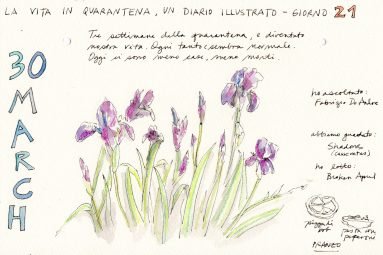 LA VITA IN QUARANTENA, UN DIARIO ILLUSTRATO - GIORNO 21
30 MARCH
Tre settimane della quarantena, e diventato
nostra vita. Ogni tanto, sembra normale.
Oggi ci sono meno casi, meno morti.
ho ascoltato:
Fabrizio De Andre
abbiamo guardato:
Shadows
(Cassavetes)
ho letto:
Broken April
pasta con
peperone
PRANZO